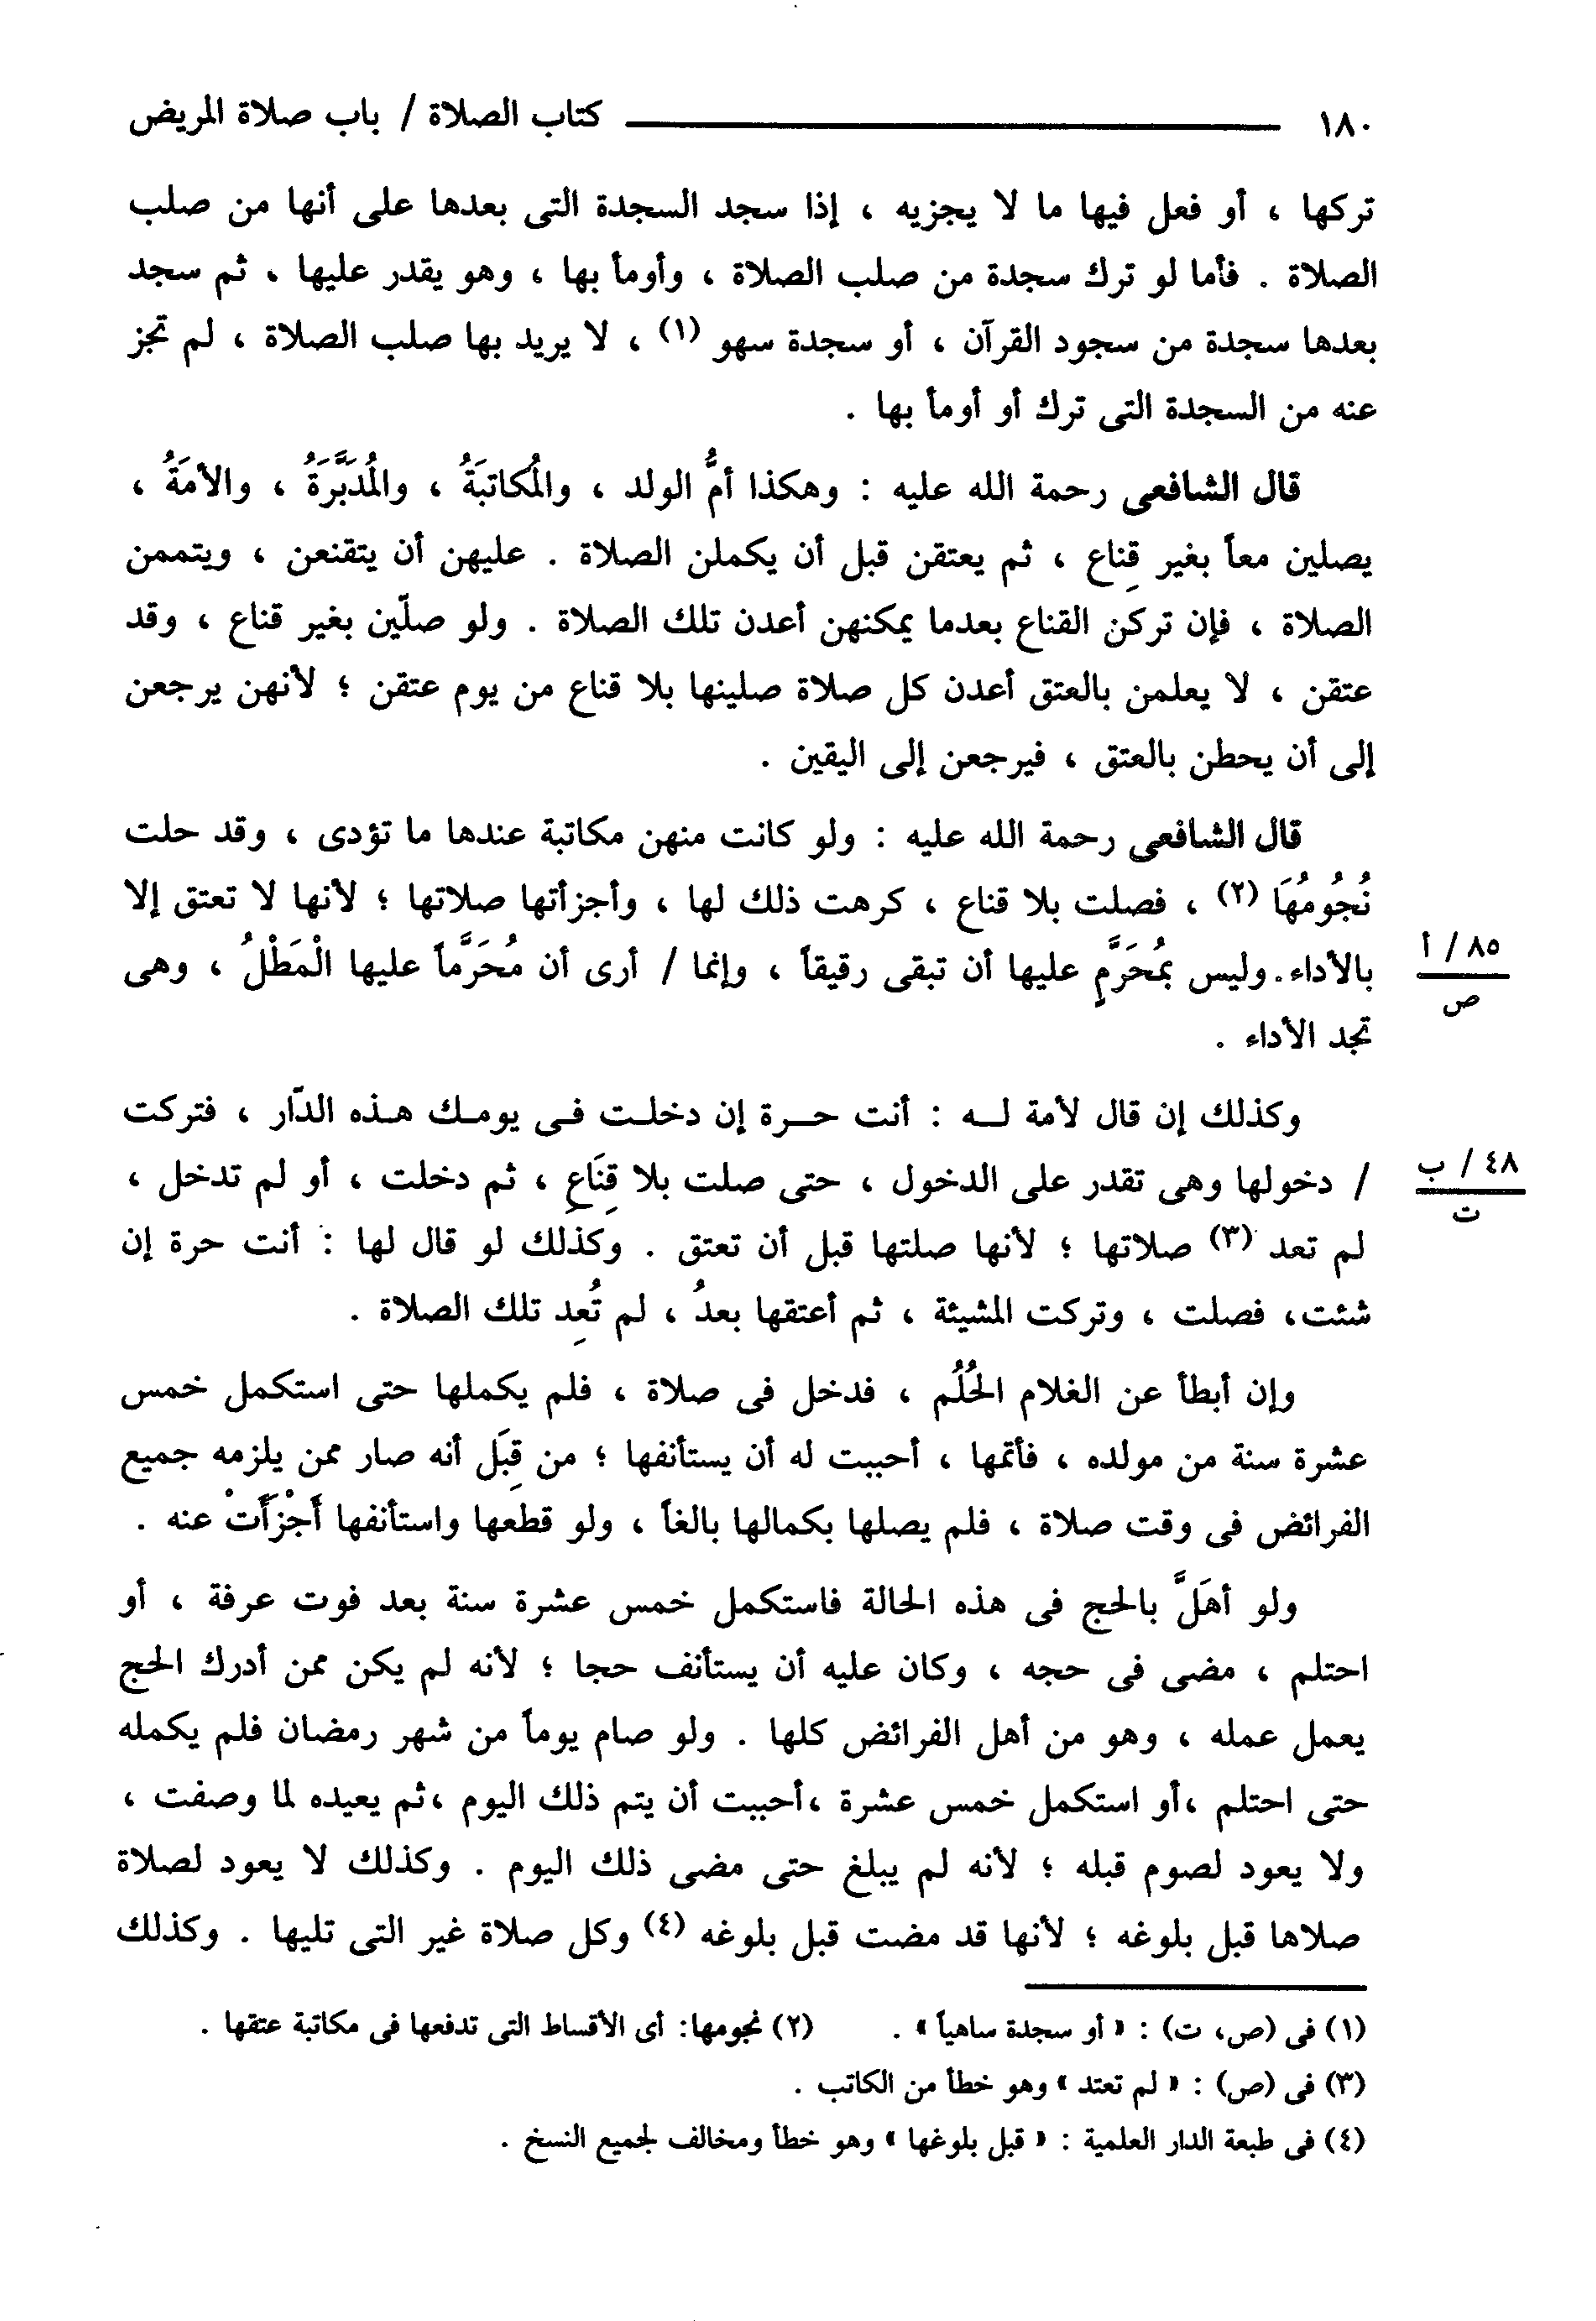 ١٨٠ ــــــــــ كتاب الصلاة / باب صلاة المريض
تركها ، أو فعل فيها ما لا يجزيه ، إذا سجد السجدة التى بعدها على أنها من صلب
الصلاة . فأما لو ترك سجدة من صلب الصلاة ، وأومأ بها ، وهو يقدر عليها ، ثم سجد
بعدها سجدة من سجود القرآن ، أو سجدة سهو (١) ، لا يريد بها صلب الصلاة ، لم تجز
عنه من السجدة التى ترك أو أومأ بها .
قال الشافعى رحمة الله عليه : وهكذا أمُّ الولد ، والمُكاتبَةُ ، والمُدَبَّرَةُ ، والأمَةُ ،
يصلين معاً بغير قِناع ، ثم يعتقن قبل أن يكملن الصلاة . عليهن أن يتقنعن ، ويتممن
الصلاة ، فإن تركن القناع بعدما يمكنهن أعدن تلك الصلاة . ولو صلّين بغير قناع ، وقد
عتقن ، لا يعلمن بالعتق أعدن كل صلاة صلينها بلا قناع من يوم عتقن ؛ لأنهن يرجعن
إلى أن يحطن بالعتق ، فيرجعن إلى اليقين .
قال الشافعى رحمة الله عليه : ولو كانت منهن مكاتبة عندها ما تؤدى ، وقد حلت
نُجُومُهَا (٢) ، فصلت بلا قناع ، كرهت ذلك لها ، وأجزأتها صلاتها ؛ لأنها لا تعتق إلا
بالأداء. وليس بمُحَرَّمٍ عليها أن تبقى رقيقاً ، وإنما / أرى أن مُحَرَّماً عليها الْمَطْلُ ، وهى
٨٥ / أ
ص
تجد الأداء .
وكذلك إن قال لأمة لــه : أنت حــرة إن دخلـت فـى يومـك هـذه الدّار ، فتركت
/ دخولها وهى تقدر على الدخول ، حتى صلت بلا قِنَاعِ ، ثم دخلت ، أو لم تدخل ،
٤٨ / ب
ت
لم تعد (٣) صلاتها ؛ لأنها صلتها قبل أن تعتق . وكذلك لو قال لها : أنت حرة إن
شئت، فصلت ، وتركت المشيئة ، ثم أعتقها بعدُ ، لم تُعِد تلك الصلاة .
وإن أبطأ عن الغلام الحُلُم ، فدخل فى صلاة ، فلم يكملها حتى استكمل خمس
عشرة سنة من مولده ، فأتمها ، أحببت له أن يستأنفها ؛ من قِبَل أنه صار ممن يلزمه جميع
الفرائض فى وقت صلاة ، فلم يصلها بكمالها بالغاً ، ولو قطعها واستأنفها أَجْزَأَتْ عنه .
ولو أهَلَّ بالحج فى هذه الحالة فاستكمل خمس عشرة سنة بعد فوت عرفة ، أو
احتلم ، مضى فى حجه ، وكان عليه أن يستأنف حجا ؛ لأنه لم يكن ممن أدرك الحج
يعمل عمله ، وهو من أهل الفرائض كلها . ولو صام يوماً من شهر رمضان فلم يكمله
حتى احتلم ،أو استكمل خمس عشرة ،أحببت أن يتم ذلك اليوم ،ثم يعيده لما وصفت ،
ولا يعود لصوم قبله ؛ لأنه لم يبلغ حتى مضى ذلك اليوم . وكذلك لا يعود لصلاة
صلاها قبل بلوغه ؛ لأنها قد مضت قبل بلوغه (٤) وكل صلاة غير التى تليها . وكذلك
(١) فى (ص، ت) : « أو سجدة ساهياً » . (٢) نجومها: أى الأقساط التى تدفعها فى مكاتبة عتقها .
(٣) فى (ص) : « لم تعتد » وهو خطأ من الكاتب .
(٤) فى طبعة الدار العلمية : « قبل بلوغها » وهو خطأ ومخالف لجميع النسخ .